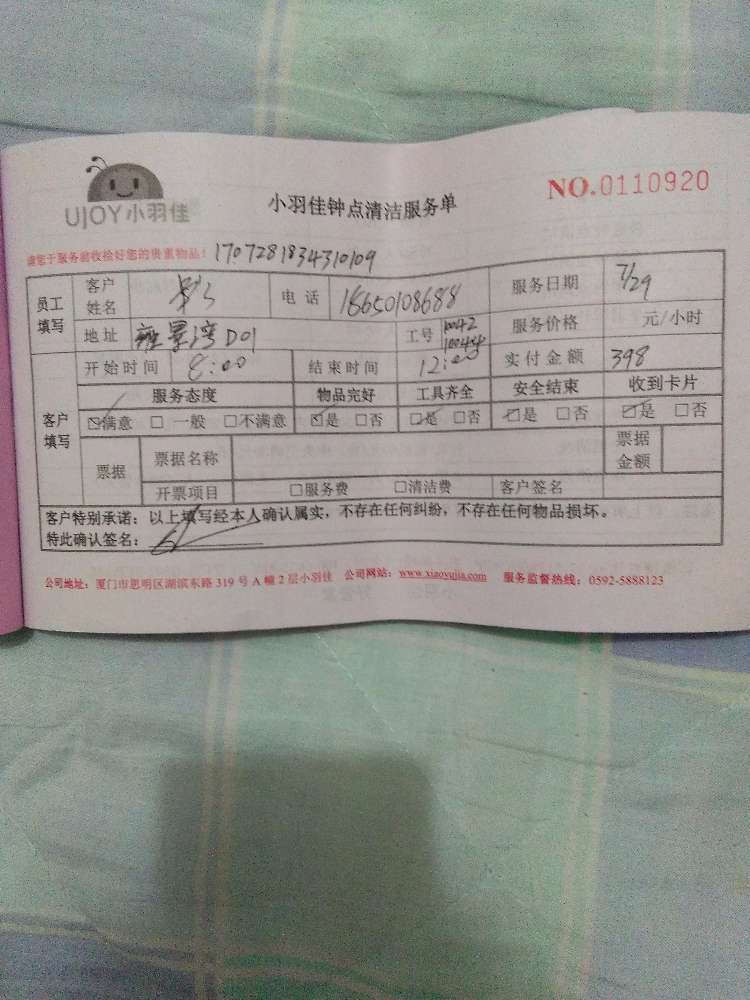 UJOY小羽佳
小羽佳钟点清洁服务单
NO.0110920
请您于服务前收捡好您的贵重物品! 1707281834310109
员工填写 客户姓名 电话 18650108688 服务日期 7/29
地址 雅景湾D01 工号 10042 服务价格 元/小时
开始时间 8:00 结束时间 12:00 实付金额 398
客户填写 服务态度 物品完好 工具齐全 安全结束 收到卡片
☑满意 □一般 □不满意 ☑是 □否 ☑是 □否 ☑是 □否 ☑是 □否
票据 票据名称 票据金额
开票项目 □服务费 □清洁费 客户签名
客户特别承诺:以上填写经本人确认属实,不存在任何纠纷,不存在任何物品损坏。
特此确认签名:
公司地址:厦门市思明区湖滨东路 319 号 A 幢 2 层小羽佳 公司网站:www.xiaoyujia.com 服务监督热线:0592-5888123